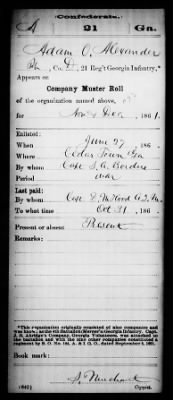 Confederate.
A 21 Ga.
Adam C. Alexander
Pt, Co. D, 21 Reg't Georgia Infantry.*
Appears on
Company Muster Roll
of the organization named above,
for Nov & Dec, 1861.
Enlisted:
When June 27, 186 .
Where Cedar Town Ga
By whom Capt S. A. Borders
Period war
Last paid:
By whom Capt E. M. Ford A.Q.M.
To what time Oct 31, 186 .
Present or absent Present
Remarks:
*This organization originally consisted of nine companies and
was known as the 4th Battalion (Mercer's) Georgia Infantry. Capt.
J. R. Akridge's Company, Georgia Volunteers, was attached to
the battalion and with the nine other companies constituted a
regiment by S. O. No. 144, A. & I. G. O., dated September 4, 1861.
Book mark:
(642) Copyist.